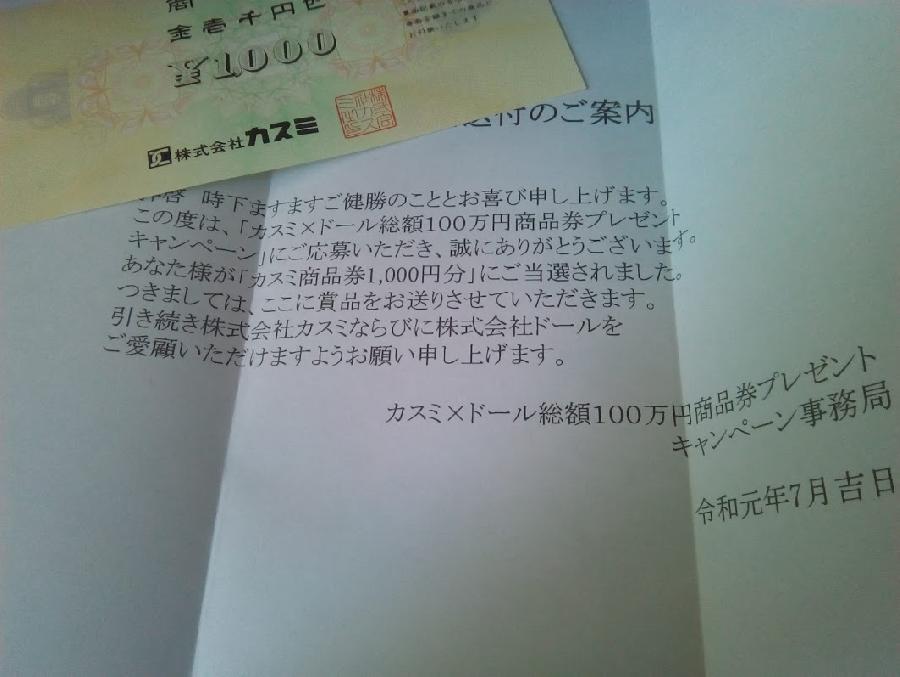 金壱千円也
¥1,000
株式会社カスミ
送付のご案内
拝啓 時下ますますご健勝のこととお喜び申し上げます。
この度は、「カスミ×ドール総額100万円商品券プレゼント
キャンペーン」にご応募いただき、誠にありがとうございます。
あなた様が「カスミ商品券1,000円分」にご当選されました。
つきましては、ここに賞品をお送りさせていただきます。
引き続き株式会社カスミならびに株式会社ドールを
ご愛顧いただけますようお願い申し上げます。
カスミ×ドール総額100万円商品券プレゼント
キャンペーン事務局
令和元年7月吉日